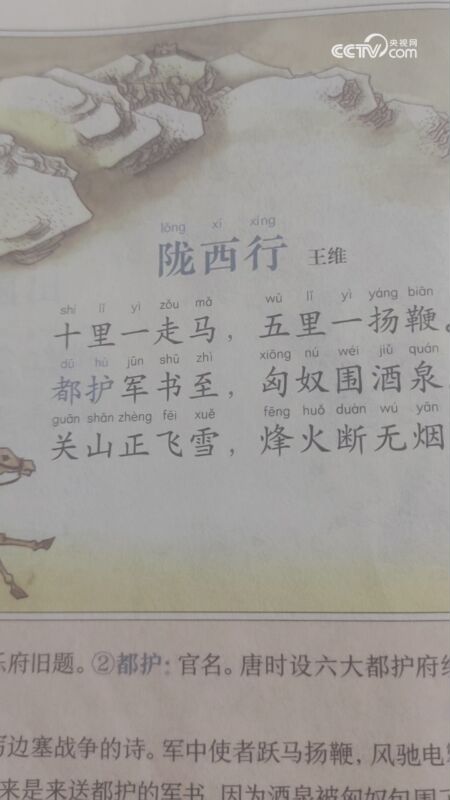 CCTV.com 央视网
lǒng xī xíng
陇西行 王维
shí lǐ yì zǒu mǎ wǔ lǐ yì yáng biān
十里一走马，五里一扬鞭。
dū hù jūn shū zhì xiōng nú wéi jiǔ quán
都护军书至，匈奴围酒泉
guān shān zhèng fēi xuě fēng huǒ duàn wú yān
关山正飞雪，烽火断无烟
乐府旧题。②都护：官名。唐时设六大都护府
边塞战争的诗。军中使者跃马扬鞭，风驰电
来是来送都护的军书，因为酒泉被匈奴包围